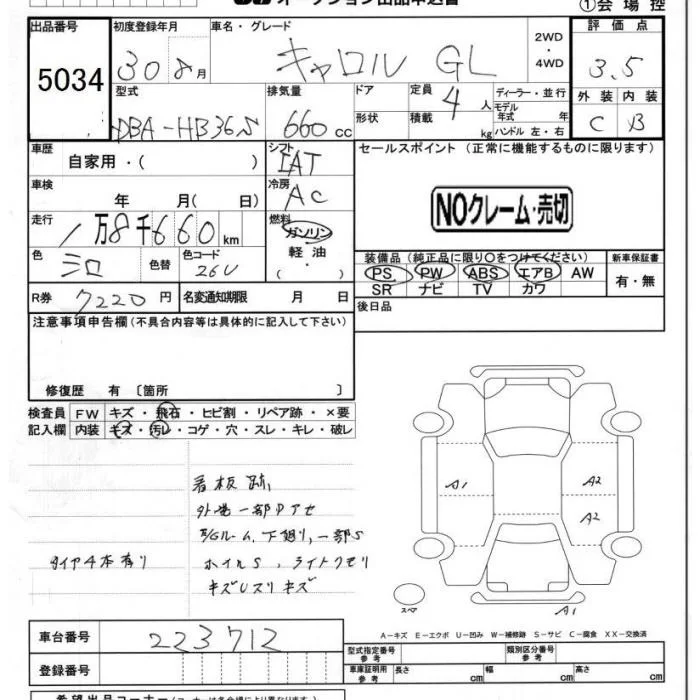 オークション出品申込書
①会場控
出品番号 初度登録年月 車名・グレード 2WD・4WD 評価点
5034 30 8月 キャロル GL 3.5
型式 排気量 ドア 定員 4人 ディーラー・並行 外装 内装
DBA-HB36S 660cc 形状 積載 kg モデル年式 年 ハンドル 左・右 C B
車歴 自家用・( ) シフト IAT セールスポイント (正常に機能するものに限ります)
車検 年 月( 日) 冷房 AC
NOクレーム・売切
走行 1万8千660km 燃料 ガソリン 軽油 ( ・ )
色 シロ 色替 色コード 26U
装備品 (純正品に限り○をつけてください) 新車保証書
PS PW ABS エアB AW 有・無
SR ナビ TV カワ
R券 7220円 名変通知期限 月 日 後日品
注意事項申告欄(不具合内容等は具体的に記入して下さい)
修復歴 有 〔箇所 〕
検査員 FW キズ・飛石・ヒビ割・リペア跡・×要
記入欄 内装 キズ・汚レ・コゲ・穴・スレ・キレ・破レ
看板跡
外装一部アセ
E/Gルーム、下廻リ、一部S
タイヤ4本有リ ホイルS、ライトクモリ
キズUスリキズ
A1 A2
A2
スペア A1
A-キズ E-エクボ U-凹み W-補修跡 S-サビ C-腐食 XX-交換済
車台番号 223712
型式指定番号 参考 類別区分番号 参考
登録番号 車庫証明用 参考 長さ cm 幅 cm 高さ cm
希望出品コーナー